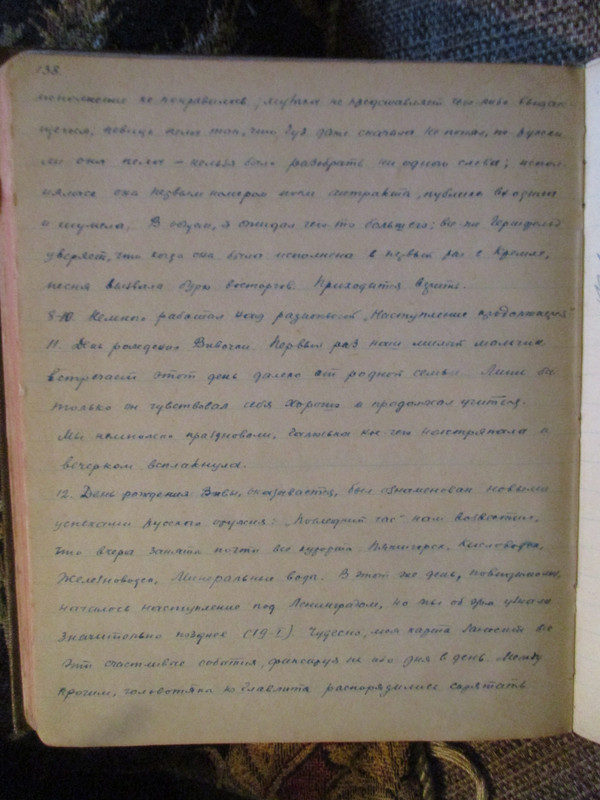 138.
исполнение не понравилось; музыка не представляет чего-либо выдаю-
щегося, певица пела так, что Гуя даже сначала не понял, на русском
ли она пела – нельзя было разобрать ни одного слова; испол-
нялась она первым номером после антракта, публика входила
и шумела. В общем, я ожидал чего-то большего; но
уверяет, что когда она была исполнена в первый раз в Кремле,
песня вызвала бурю восторгов. Приходится верить.
8-10. Немного работал над разностью „Наступление продолжается“
11. День рождения Вивочки. Первый раз наш милый мальчик
встречает этот день далеко от родной семьи. Лишь бы
только он чувствовал себя хорошо и продолжал учиться.
Мы немножко праздновали, Галюська кое-чего настряпала и
вечерком всплакнула.
12. День рождения Вивы, оказывается, был ознаменован новыми
успехами русского оружия: „Последний час“ нам возвестил,
что вчера занято почти все курорты Пятигорск, Кисловодск,
Железноводск, Минеральные воды. В этот же день, повидимому,
началось наступление под Ленинградом, но мы об этом узнали
значительно позднее (19-I). Чудесно, моя карта заносит все
эти счастливые события, фиксируя их изо дня в день. Между
прочим, головотяпы из Главлита распорядились спрятать